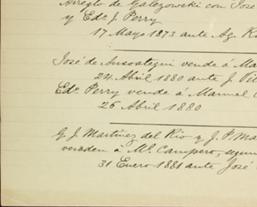 Arreglo de Galezowski con José
y Edo. J. Perry
17 Mayo 1873 ante Ag.
José de Ansoategui vende á
24 Abril 1880 ante J.
Edo. Perry vende á Manuel
26 Abril 1880
G. J. Martínez del Rio y J. P.
venden á Ml. Campero,
31 Enero 1881 ante José